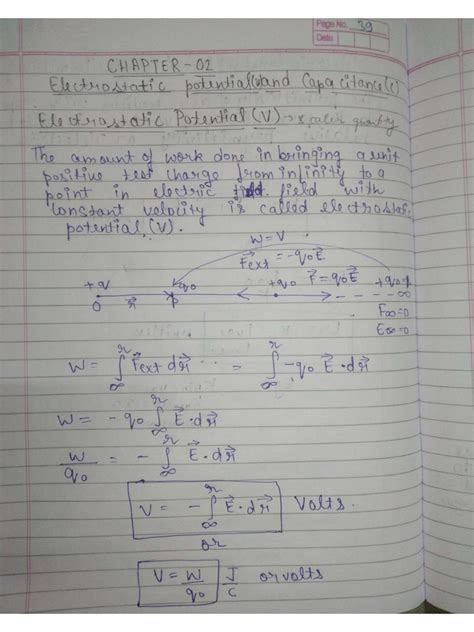 Page No. 39
Date
CHAPTER-02
Electrostatic potential(V) and Capacitance(C)
Electrostatic Potential (V) → scaler quantity
The amount of work done in bringing a unit
positive test charge from infinity to a
point in electric field with
constant velocity is called electrostatic
potential (V).
W = V
F⃗ext = -q₀E⃗
+q q₀ +q₀ F⃗ = q₀E⃗
O r⃗ P ∞
F∞=0
E∞=0
W = ∫∞^r F⃗ext dr⃗ = ∫∞^r -q₀ E⃗ · dr⃗
W = - q₀ ∫∞^r E⃗ · dr⃗
W/q₀ = - ∫∞^r E⃗ · dr⃗
V = - ∫∞^r E⃗ · dr⃗ Volts.
or
V = W/q₀ J/C or volts